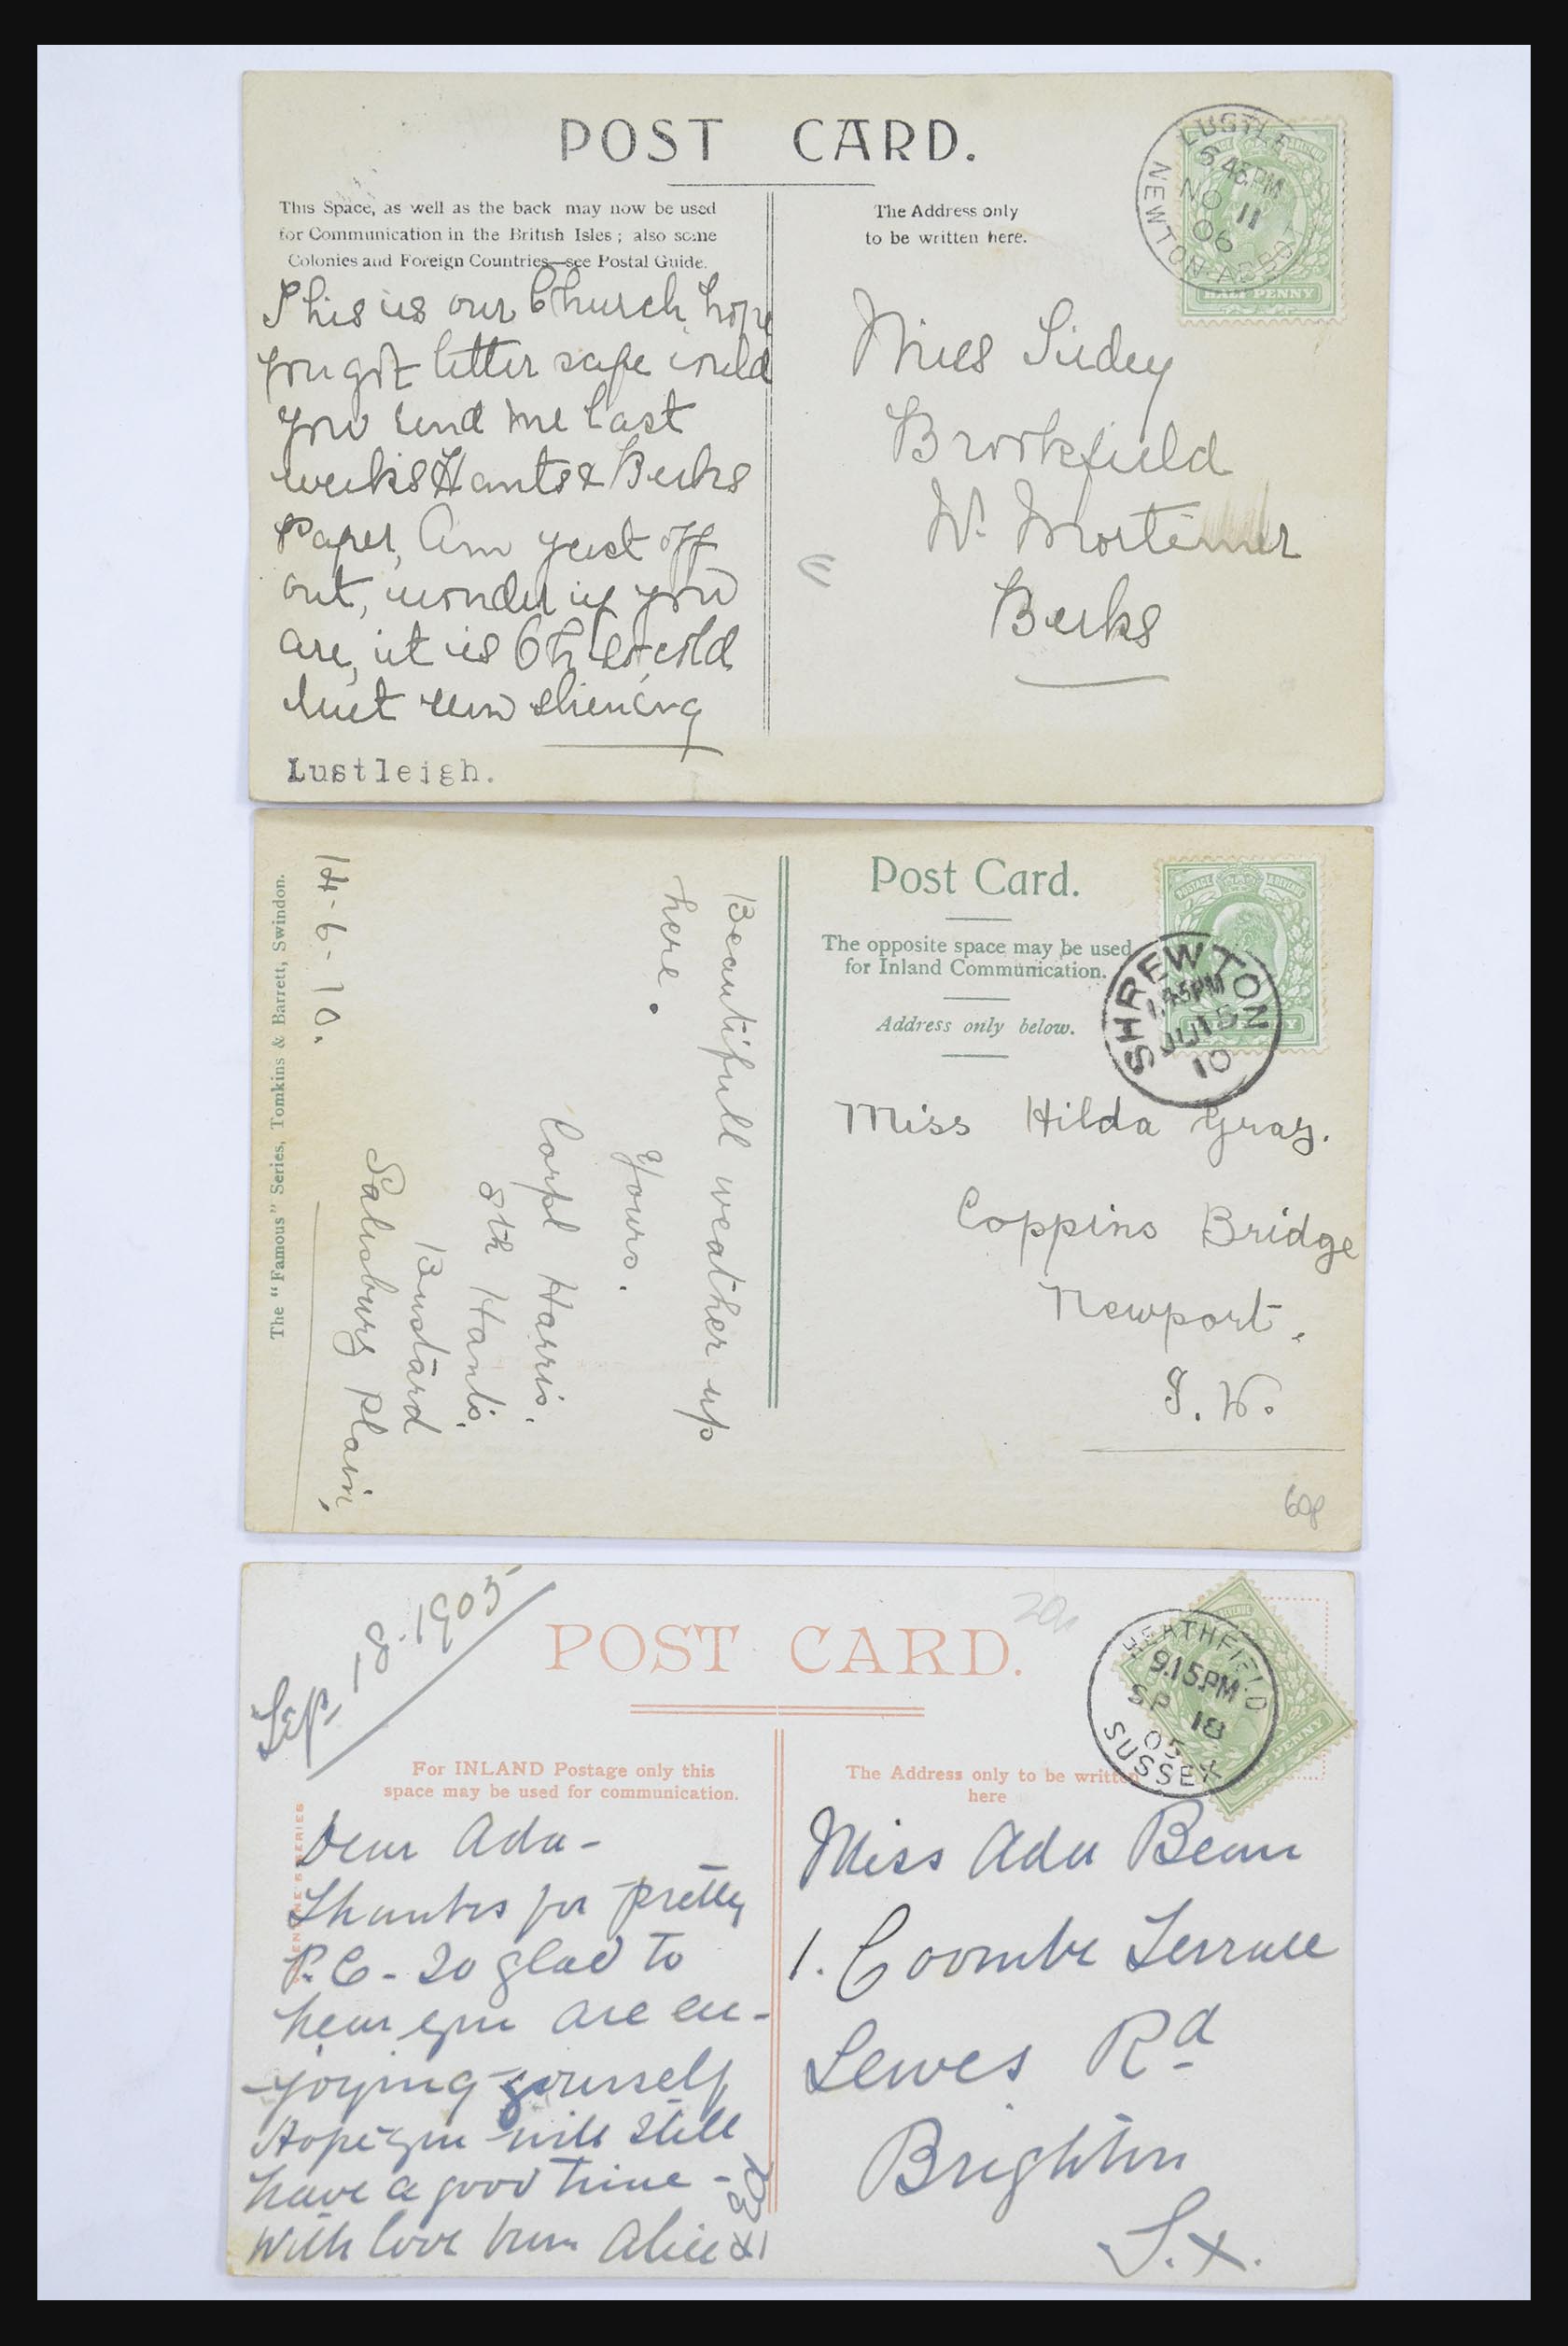 POST CARD.
This Space, as well as the back may now be used
for Communication in the British Isles; also some
Colonies and Foreign Countries—see Postal Guide.
The Address only
to be written here.
LUSTLE
5.45PM
NO 11
06
NEWTON-ABBOT
HALF PENNY
This is our Church hope
you got letter safe could
you send me last
weeks Hants & Berks
Paper, Am just off
out, wonder if you
are, it is Oh so cold
but sun shining
Lustleigh.
Miss Sidey
Brookfield
W. Mortimer
Berks
Post Card.
The opposite space may be used
for Inland Communication.
Address only below.
POSTAGE REVENUE
SHREWTON
1.45PM
JU 15
10
Beautifull weather up
here.
Yours.
Corpl Harris.
8th Hants.
Bustard
Salisbury Plain,
14-6-10.
The "Famous" Series, Tomkins & Barrett, Swindon.
Miss Hilda Gray.
Coppins Bridge
Newport.
I. W.
60p
Sep 18. 1905
POST CARD.
20p
For INLAND Postage only this
space may be used for communication.
The Address only to be written
here
HEATHFIELD
9.15PM
SP 18
05
SUSSEX
PENNY
Dear Ada -
Thanks for pretty
P.C - So glad to
hear you are en-
-joying yourself
Hope you will still
have a good time -
with love from Alice &
Miss Ada Bean
1. Coombe Terrace
Lewes Rd
Brighton
S.x.